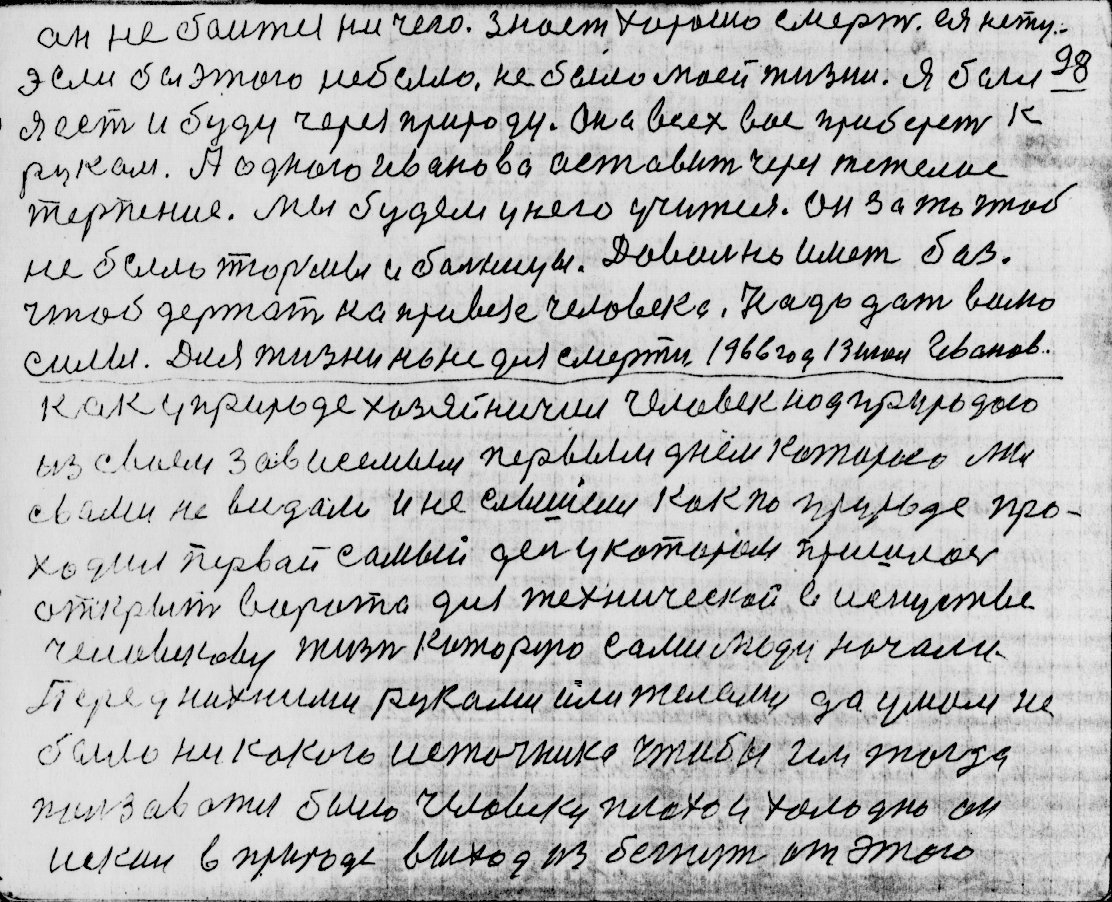 он не боится ни чего. знает хорошо смерт. ея нету.
если бы этого небыло, не было моей жизни. Я был 98
я ест и буду через природу. Она всех вас приберет к
рукам. А одного Иванова оставит через тяжелое
терпение. мы будем унего учится. Он за то чтоб
не было тюрмы и болницы. Довольно имет баз.
чтоб держат на привезе человека. Надо дат волю
силы. Для жизни ноне для смерти 1966 год 13 мая Иванов.
Как у природе хозяйничил человек надприродою
из своем зависемым первым днём которого мы
свами не видали и не слышели как по природе про-
ходил первай самый ден укотором пришлос
открыт ворота для технической в искустве
человикову жизн которую сами люди начали.
Перед нихними руками или телами да умом не
было ни какого источника чтибы им тогда
ползаватся было человеку плохо и холодно он
искал в природе выход из бегнут от этого